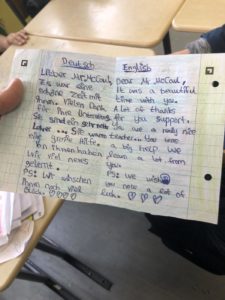 Deutsch
Lieber Mr. McCaul,
Es war eine
schöne Zeit mit
Ihnen. Vielen Dank
für Ihre
Sie sind ein sehr
Lehrer... Sie waren
eine große Hilfe.
Von ihnen haben
wir viel neues
gelernt.
PS: Wir wünschen
Ihnen noch viel
Glück. ♡♡♡
English
Dear Mr. McCaul,
It was a beautiful
time with you.
A lot of thanks
for you support.
You are a really nice
teacher... You were
a big help. We
learn a lot from
you.
PS: We wish
you now a lot of
luck. ♡♡♡